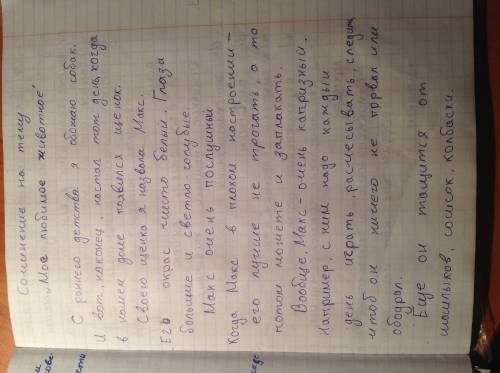 Сочинение на тему
"Мое любимое животное"
С раннего детства я обожаю собак.
И вот, наконец, настал тот день, когда
в нашем доме появился щенок.
Своего щенка я назвала Макс.
Его окрас чисто белый. Глаза
большие и светло голубые.
Макс очень послушный
Когда Макс в плохом настроении -
его лучше не трогать, а то
потом может и заплакать.
Вообще, Макс - очень капризный.
Например, с ним надо каждый
день играть, расчесывать, следить
чтоб он ничего не порвал или
ободрал.
Еще он тащится от
шашлыков, сосисок, колбаски.